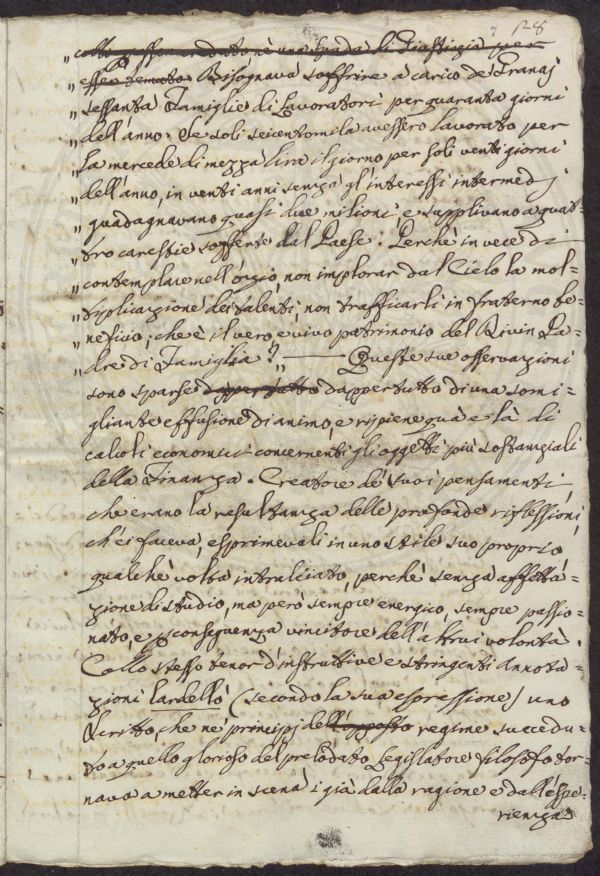 128
„ collo esser creduto nè una spada di Giastigia per
„ esser temuto Bisognava soffrire a carico de' Granaj
„ sessanta Famiglie di Lavoratori per quaranta giorni
„ dell'anno. Se soli seicentomila avessero lavorato per
„ la mercede di mezza Lira il giorno per soli venti giorni
„ dell'anno, in venti anni senza gl'interessi intermedj
„ guadagnavano quasi due milioni e supplivano a quat=
„ tro carestie sofferte dal Paese. Perchè in vece di
„ contemplare nell'ozio, non implorar dal Cielo la mol=
„ tiplicazione dei talenti, non trafficarli in fraterno be=
„ neficio, che è il vero e vivo patrimonio del Divin Pa=
„ dre di Famiglia? „ —— Queste sue osservazioni
sono sparse dappertutto dappertutto di una somi=
gliante effusione di animo, e ripiene quà e là di
calcoli economici concernenti gli oggetti più sostanziali
della Finanza. Creatore de' suoi pensamenti,
che erano la resultanza delle profonde riflessioni,
ch'ei faceva, esprimevali in uno stile suo proprio
qualche volta intralciato, perchè senza affetta=
zione di studio, ma però sempre energico, sempre passio=
nato, e p conseguenza vincitore dell'altrui volontà.
Collo stesso tenor d'instruttive e stringenti annota=
zioni lardellò (secondo la sua espressione) uno
scritto, che ne' principj dell'opposto regime succedu=
to a quello glorioso del prelodato Legislatore filosofo tor=
nava a metter in scena i già dalla ragione e dall'espe=
rienza